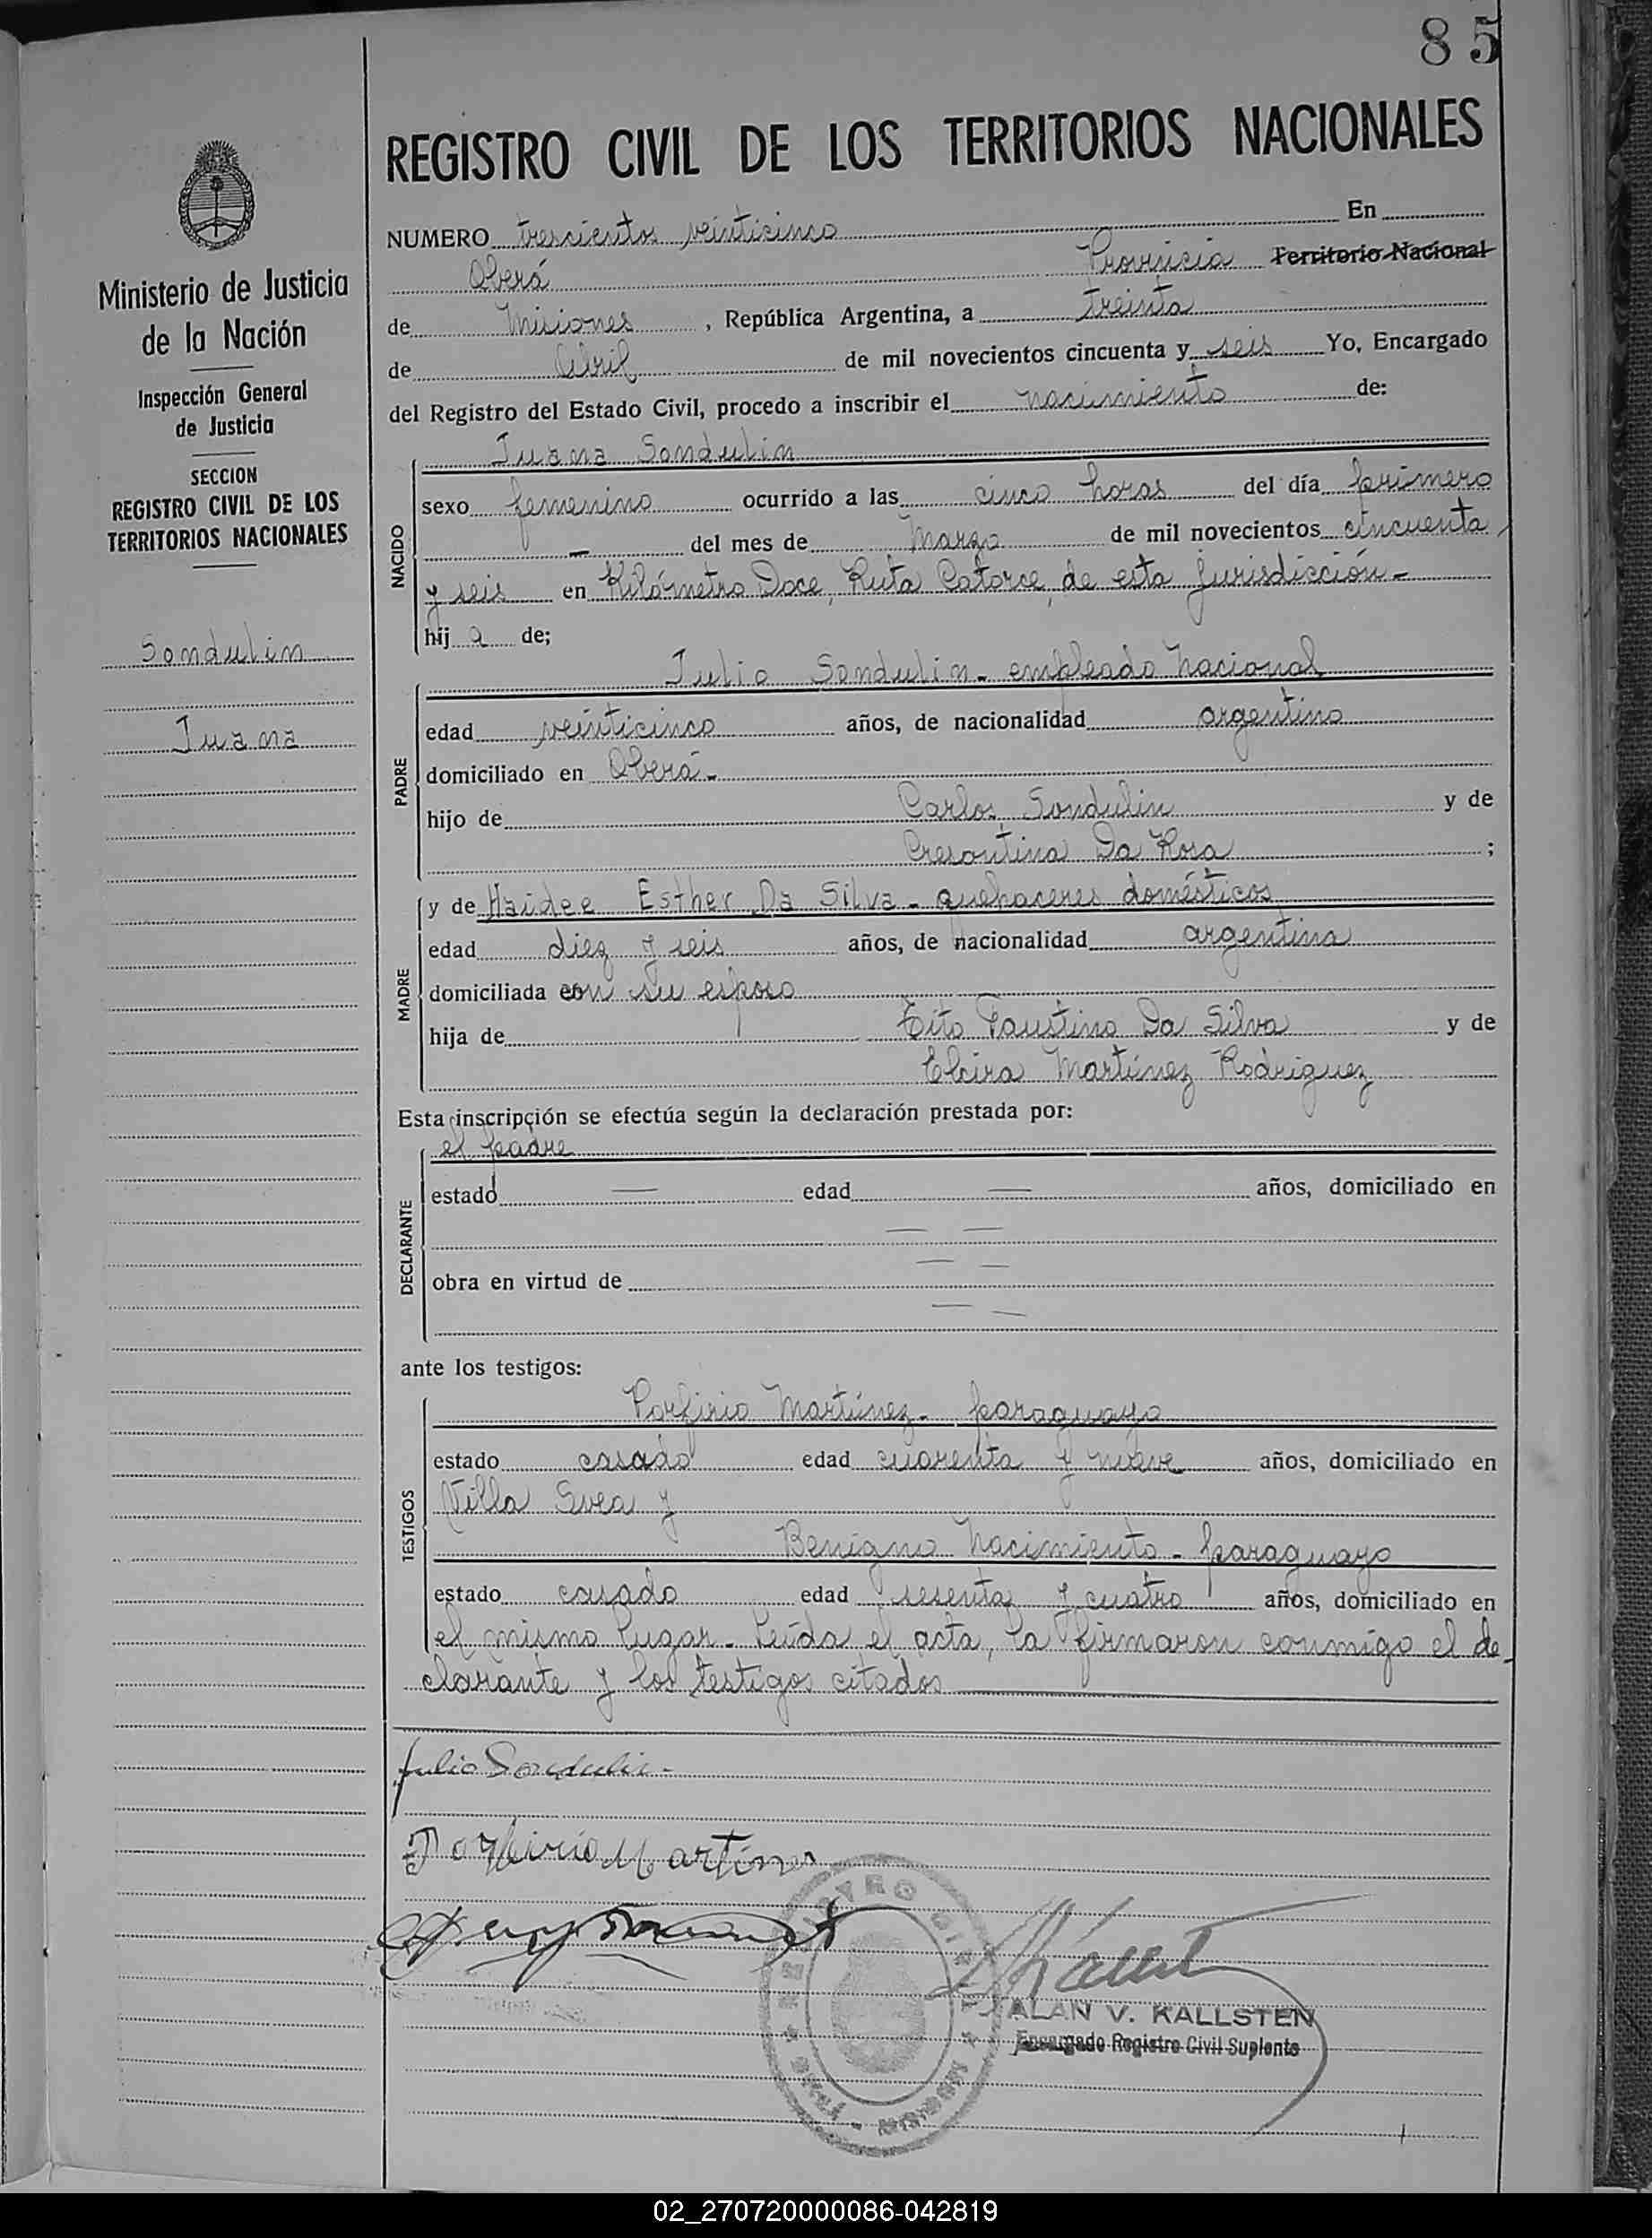 85
REGISTRO CIVIL DE LOS TERRITORIOS NACIONALES
Ministerio de Justicia
de la Nación
Inspección General
de Justicia
SECCION
REGISTRO CIVIL DE LOS
TERRITORIOS NACIONALES
Sondulin
Juana
NUMERO trescientos veinticinco En
Oberá Provincia Territorio Nacional
de Misiones, República Argentina, a treinta
de Abril de mil novecientos cincuenta y seis Yo, Encargado
del Registro del Estado Civil, procedo a inscribir el nacimiento de:
Juana Sondulin
NACIDO
sexo femenino ocurrido a las cinco horas del día primero
— del mes de Marzo de mil novecientos cincuenta
y seis en Kilómetro Doce, Ruta Catorce, de esta jurisdicción-
hij a de;
Julio Sondulin- empleado nacional
PADRE
edad veinticinco años, de nacionalidad argentino
domiciliado en Oberá-
hijo de Carlos Sondulin y de
Cresontina Da Rosa ;
y de Haidee Esther Da Silva - quehaceres domésticos
MADRE
edad diez y seis años, de nacionalidad argentina
domiciliada con su esposo
hija de Tito Faustino Da Silva y de
Elcira Martínez Rodriguez
Esta inscripción se efectúa según la declaración prestada por:
el padre
DECLARANTE
estado — edad — años, domiciliado en
— —
obra en virtud de — —
— —
ante los testigos:
TESTIGOS
Porfirio Martínez- paraguayo
estado casado edad cuarenta y nueve años, domiciliado en
Villa Svea y
Benigno Nacimiento - paraguayo
estado casado edad sesenta y cuatro años, domiciliado en
el mismo lugar- Leída el acta, la firmaron conmigo el de-
clarante y los testigos citados
Julio Sondulin-
Porfirio Martínez
REGISTRO CIVIL
ALAN V. KALLSTEN
Encargado Registro Civil Suplente
02_270720000086-042819